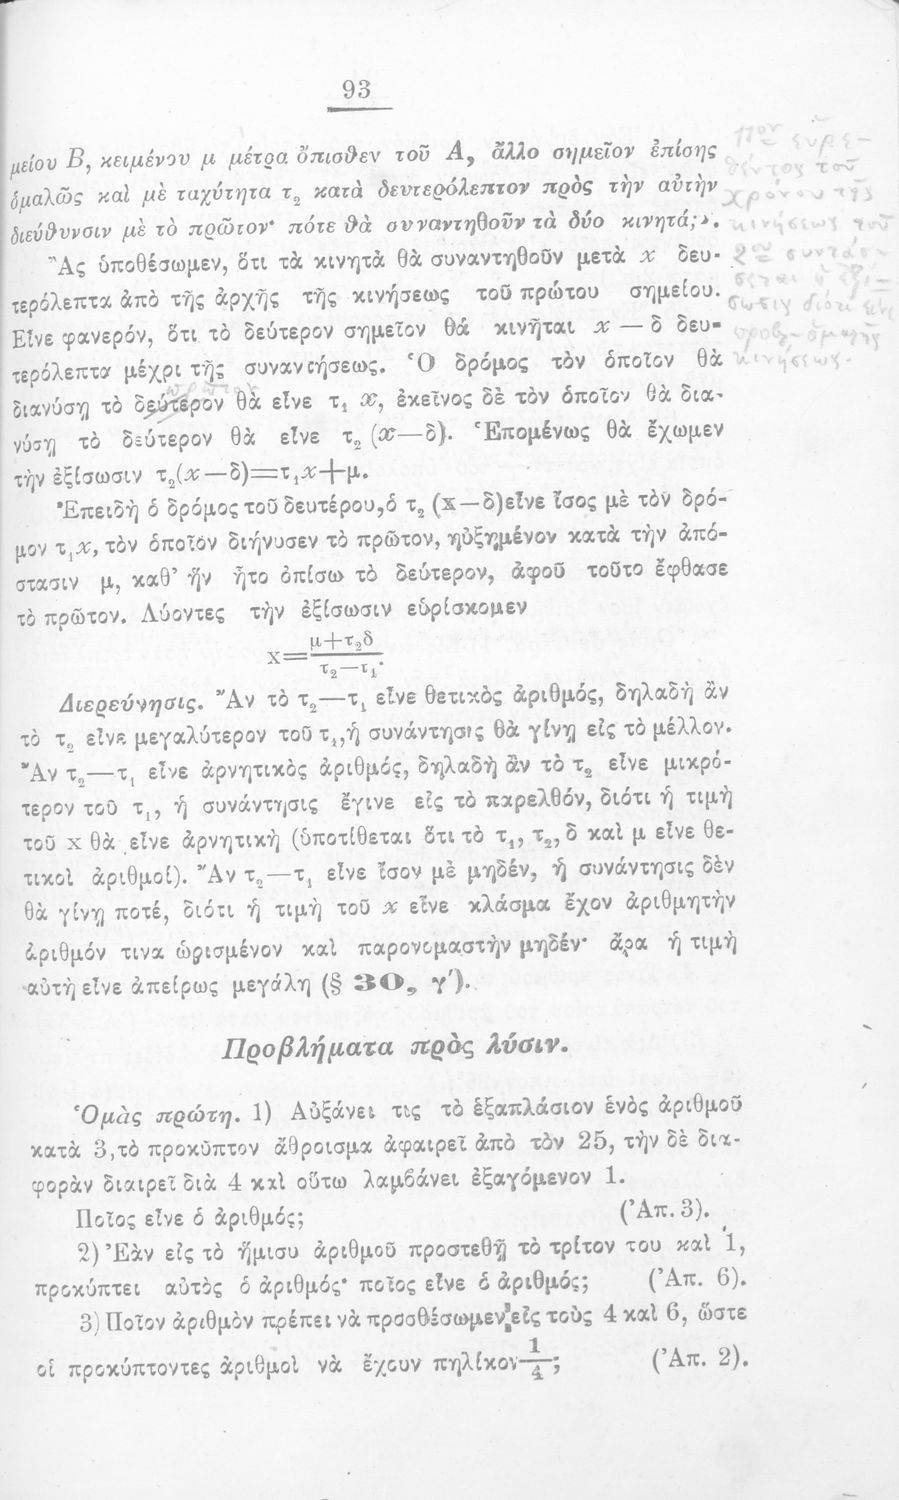 93
μείου Β, κειμένου μ μέτρα ὄπισθεν τοῦ Α, ἄλλο σημεῖον ἐπίσης
ὁμαλῶς καὶ μὲ ταχύτητα τ₂ κατὰ δευτερόλεπτον πρὸς τὴν αὐτὴν
διεύθυνσιν μὲ τὸ πρῶτον· πότε θὰ συναντηθοῦν τὰ δύο κινητά;».
Ἂς ὑποθέσωμεν, ὅτι τὰ κινητὰ θὰ συναντηθοῦν μετὰ x δευ-
τερόλεπτα ἀπὸ τῆς ἀρχῆς τῆς κινήσεως τοῦ πρώτου σημείου.
Εἶνε φανερόν, ὅτι τὸ δεύτερον σημεῖον θά κινῆται x — δ δευ-
τερόλεπτα μέχρι τῆς συναντήσεως. Ὁ δρόμος τὸν ὁποῖον θὰ
πρῶτον
διανύσῃ τὸ δεύτερον θὰ εἶνε τ₁ x, ἐκεῖνος δὲ τὸν ὁποῖον θὰ δια-
νύσῃ τὸ δεύτερον θὰ εἶνε τ₂ (x—δ). Ἑπομένως θὰ ἔχωμεν
τὴν ἐξίσωσιν τ₂(x—δ)=τ₁x+μ.
Ἐπειδὴ ὁ δρόμος τοῦ δευτέρου,ὁ τ₂ (x—δ)εἶνε ἴσος μὲ τὸν δρό-
μον τ₁x, τὸν ὁποῖον διήνυσεν τὸ πρῶτον, ηὐξημένον κατὰ τὴν ἀπό-
στασιν μ, καθ' ἥν ἦτο ὀπίσω τὸ δεύτερον, ἀφοῦ τοῦτο ἔφθασε
τὸ πρῶτον. Λύοντες τὴν ἐξίσωσιν εὑρίσκομεν
x=(μ+τ₂δ)/(τ₂—τ₁).
Διερεύνησις. Ἂν τὸ τ₂—τ₁ εἶνε θετικὸς ἀριθμός, δηλαδὴ ἂν
τὸ τ₂ εἶνε μεγαλύτερον τοῦ τ₁,ἡ συνάντησις θὰ γίνῃ εἰς τὸ μέλλον.
Ἂν τ₂—τ₁ εἶνε ἀρνητικὸς ἀριθμός, δηλαδὴ ἂν τὸ τ₂ εἶνε μικρό-
τερον τοῦ τ₁, ἡ συνάντησις ἔγινε εἰς τὸ παρελθόν, διότι ἡ τιμὴ
τοῦ x θὰ εἶνε ἀρνητικὴ (ὑποτίθεται ὅτι τὸ τ₁, τ₂, δ καὶ μ εἶνε θε-
τικοὶ ἀριθμοί). Ἂν τ₂—τ₁ εἶνε ἴσον μὲ μηδέν, ἡ συνάντησις δὲν
θὰ γίνῃ ποτέ, διότι ἡ τιμὴ τοῦ x εἶνε κλάσμα ἔχον ἀριθμητὴν
ἀριθμόν τινα ὡρισμένον καὶ παρονομαστὴν μηδέν· ἄρα ἡ τιμὴ
αὐτὴ εἶνε ἀπείρως μεγάλη (§ 30, γ').
Προβλήματα πρὸς λύσιν.
Ὁμὰς πρώτη. 1) Αὐξάνει τις τὸ ἑξαπλάσιον ἑνὸς ἀριθμοῦ
κατὰ 3,τὸ προκῦπτον ἄθροισμα ἀφαιρεῖ ἀπὸ τὸν 25, τὴν δὲ δια-
φορὰν διαιρεῖ διὰ 4 καὶ οὕτω λαμβάνει ἐξαγόμενον 1.
Ποῖος εἶνε ὁ ἀριθμός; (Ἀπ. 3).
2) Ἐὰν εἰς τὸ ἥμισυ ἀριθμοῦ προστεθῇ τὸ τρίτον του καὶ 1,
προκύπτει αὐτὸς ὁ ἀριθμός· ποῖος εἶνε ὁ ἀριθμός; (Ἀπ. 6).
3) Ποῖον ἀριθμὸν πρέπει νὰ προσθέσωμεν εἰς τοὺς 4 καὶ 6, ὥστε
οἱ προκύπτοντες ἀριθμοὶ νὰ ἔχουν πηλίκον 1/4; (Ἀπ. 2).
εὑρε-
θέντος τοῦ
χρόνου τῆς
κινήσεως τοῦ
2ου συντάσ-
σεται ἡ ἐξί-
σωσις διότι εἶνε
προβ. ὁμαλῆς
κινήσεως.